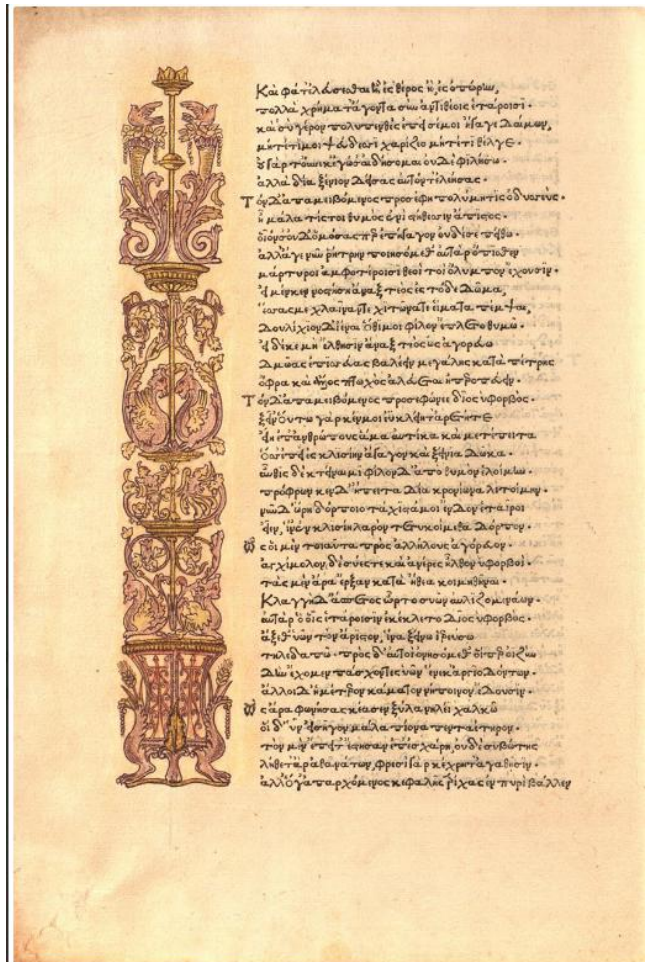 Καὶ φάτ' ἐλεύσεσθαι ἢ ἐς θέρος ἢ ἐς ὀπώρην,
πολλὰ χρήματ' ἄγοντα σὺν ἀντιθέοις ἑτάροισι.
καὶ σὺ γέρον πολυπενθὲς ἐπεὶ σέ μοι ἤγαγε δαίμων,
μήτε τί μοι ψεύδεσσι χαρίζεο μήτε τι θέλγε.
οὐ γὰρ τοὔνεκ' ἐγώ σ' αἰδέσσομαι οὐδὲ φιλήσω.
ἀλλὰ δία ξένιον δείσας αὐτόν τ'
Τὸν δ' ἀπαμειβόμενος προσέφη πολύμητις ὀδυσσεύς.
ἦ μάλα τίς τοι θυμὸς ἐνὶ στήθεσσιν ἄπιστος.
οἷόν σ' οὐδ' ὀμόσας περ ἐπήγαγον οὐδέ σε πείθω.
ἀλλ' ἄγε νῦν ῥήτρην ποιησόμεθ' αὐτὰρ ὄπισθεν
μάρτυροι ἀμφοτέροισι θεοὶ τοὶ ὄλυμπον ἔχουσιν.
εἰ μέν κεν νοστήσῃ ἄναξ τεὸς ἐς τόδε δῶμα,
ἕσσας με χλαῖνάν τε χιτῶνά τε εἵματα πέμψαι,
Δουλίχιον δ' ἰέναι ὅθι μοι φίλον ἔπλετο θυμῷ.
εἰ δέ κε μὴ ἔλθησιν ἄναξ τεὸς ὡς ἀγορεύω
Δμῶας ἐπισσεύας βαλέειν μεγάλης κατὰ πέτρης
ὄφρα καὶ ἄλλος πτωχὸς ἀλεύεται ἠπεροπεύειν.
Τὸν δ' ἀπαμειβόμενος προσεφώνεε δῖος ὑφορβός.
ξεῖν' οὕτω γάρ κέν μοι ἐϋκλείη τ' ἀρετή τε
εἴη ἐπ' ἀνθρώπους ἅμα αὐτίκα καὶ μετέπειτα
ὅς σ' ἐπεὶ ἐς κλισίην ἄγαγον καὶ ξείνια δῶκα.
αὖθις δὲ κτείναιμι φίλον δ' ἀπὸ θυμὸν ἑλοίμην.
πρόφρων κεν δὴ ἔπειτα δία κρονίωνα λιτοίμην.
νῦν δ' ὥρη δόρποιο τάχιστά μοι ἔνδον ἑταῖροι
εἶεν, ἵν' ἐν κλισίῃ λαρὸν τετυκοίμεθα δόρπον.
Ὣς οἱ μὲν τοιαῦτα πρὸς ἀλλήλους ἀγόρευον.
ἀγχίμολον δὲ σύες τε καὶ ἀνέρες ἦλθον ὑφορβοί.
τὰς μὲν ἄρα ἔρξαν κατὰ ἤθεα κοιμηθῆναι.
Κλαγγὴ δ' ἄσπετος ὦρτο συῶν αὐλιζομενάων.
αὐτὰρ ὁ οἷς ἑτάροισιν ἐκέκλετο δῖος ὑφορβός.
ἄξεθ' ὑῶν τὸν ἄριστον, ἵνα ξείνῳ ἱερεύσω
τηλεδαπῷ. πρὸς δ' αὐτοὶ ὀνησόμεθ' οἵ περ ὀϊζὺν
Δὴν ἔχομεν πάσχοντες ὑῶν ἕνεκ' ἀργιοδόντων.
ἄλλοι δ' ἡμέτερον κάματον νήποινον ἔδουσιν.
Ὣς ἄρα φωνήσας κέασε ξύλα νηλέϊ χαλκῷ
οἱ δ' ὗν εἰσῆγον μάλα πίονα πενταέτηρον.
τὸν μὲν ἔπειτ' ἔστησαν ἐπ' ἐσχάρῃ, οὐδὲ συβώτης
λήθετ' ἄρ' ἀθανάτων, φρεσὶ γὰρ κέχρητ' ἀγαθῇσιν.
ἀλλ' ὅ γ' ἀπαρχόμενος κεφαλῆς τρίχας ἐν πυρὶ βάλλεν